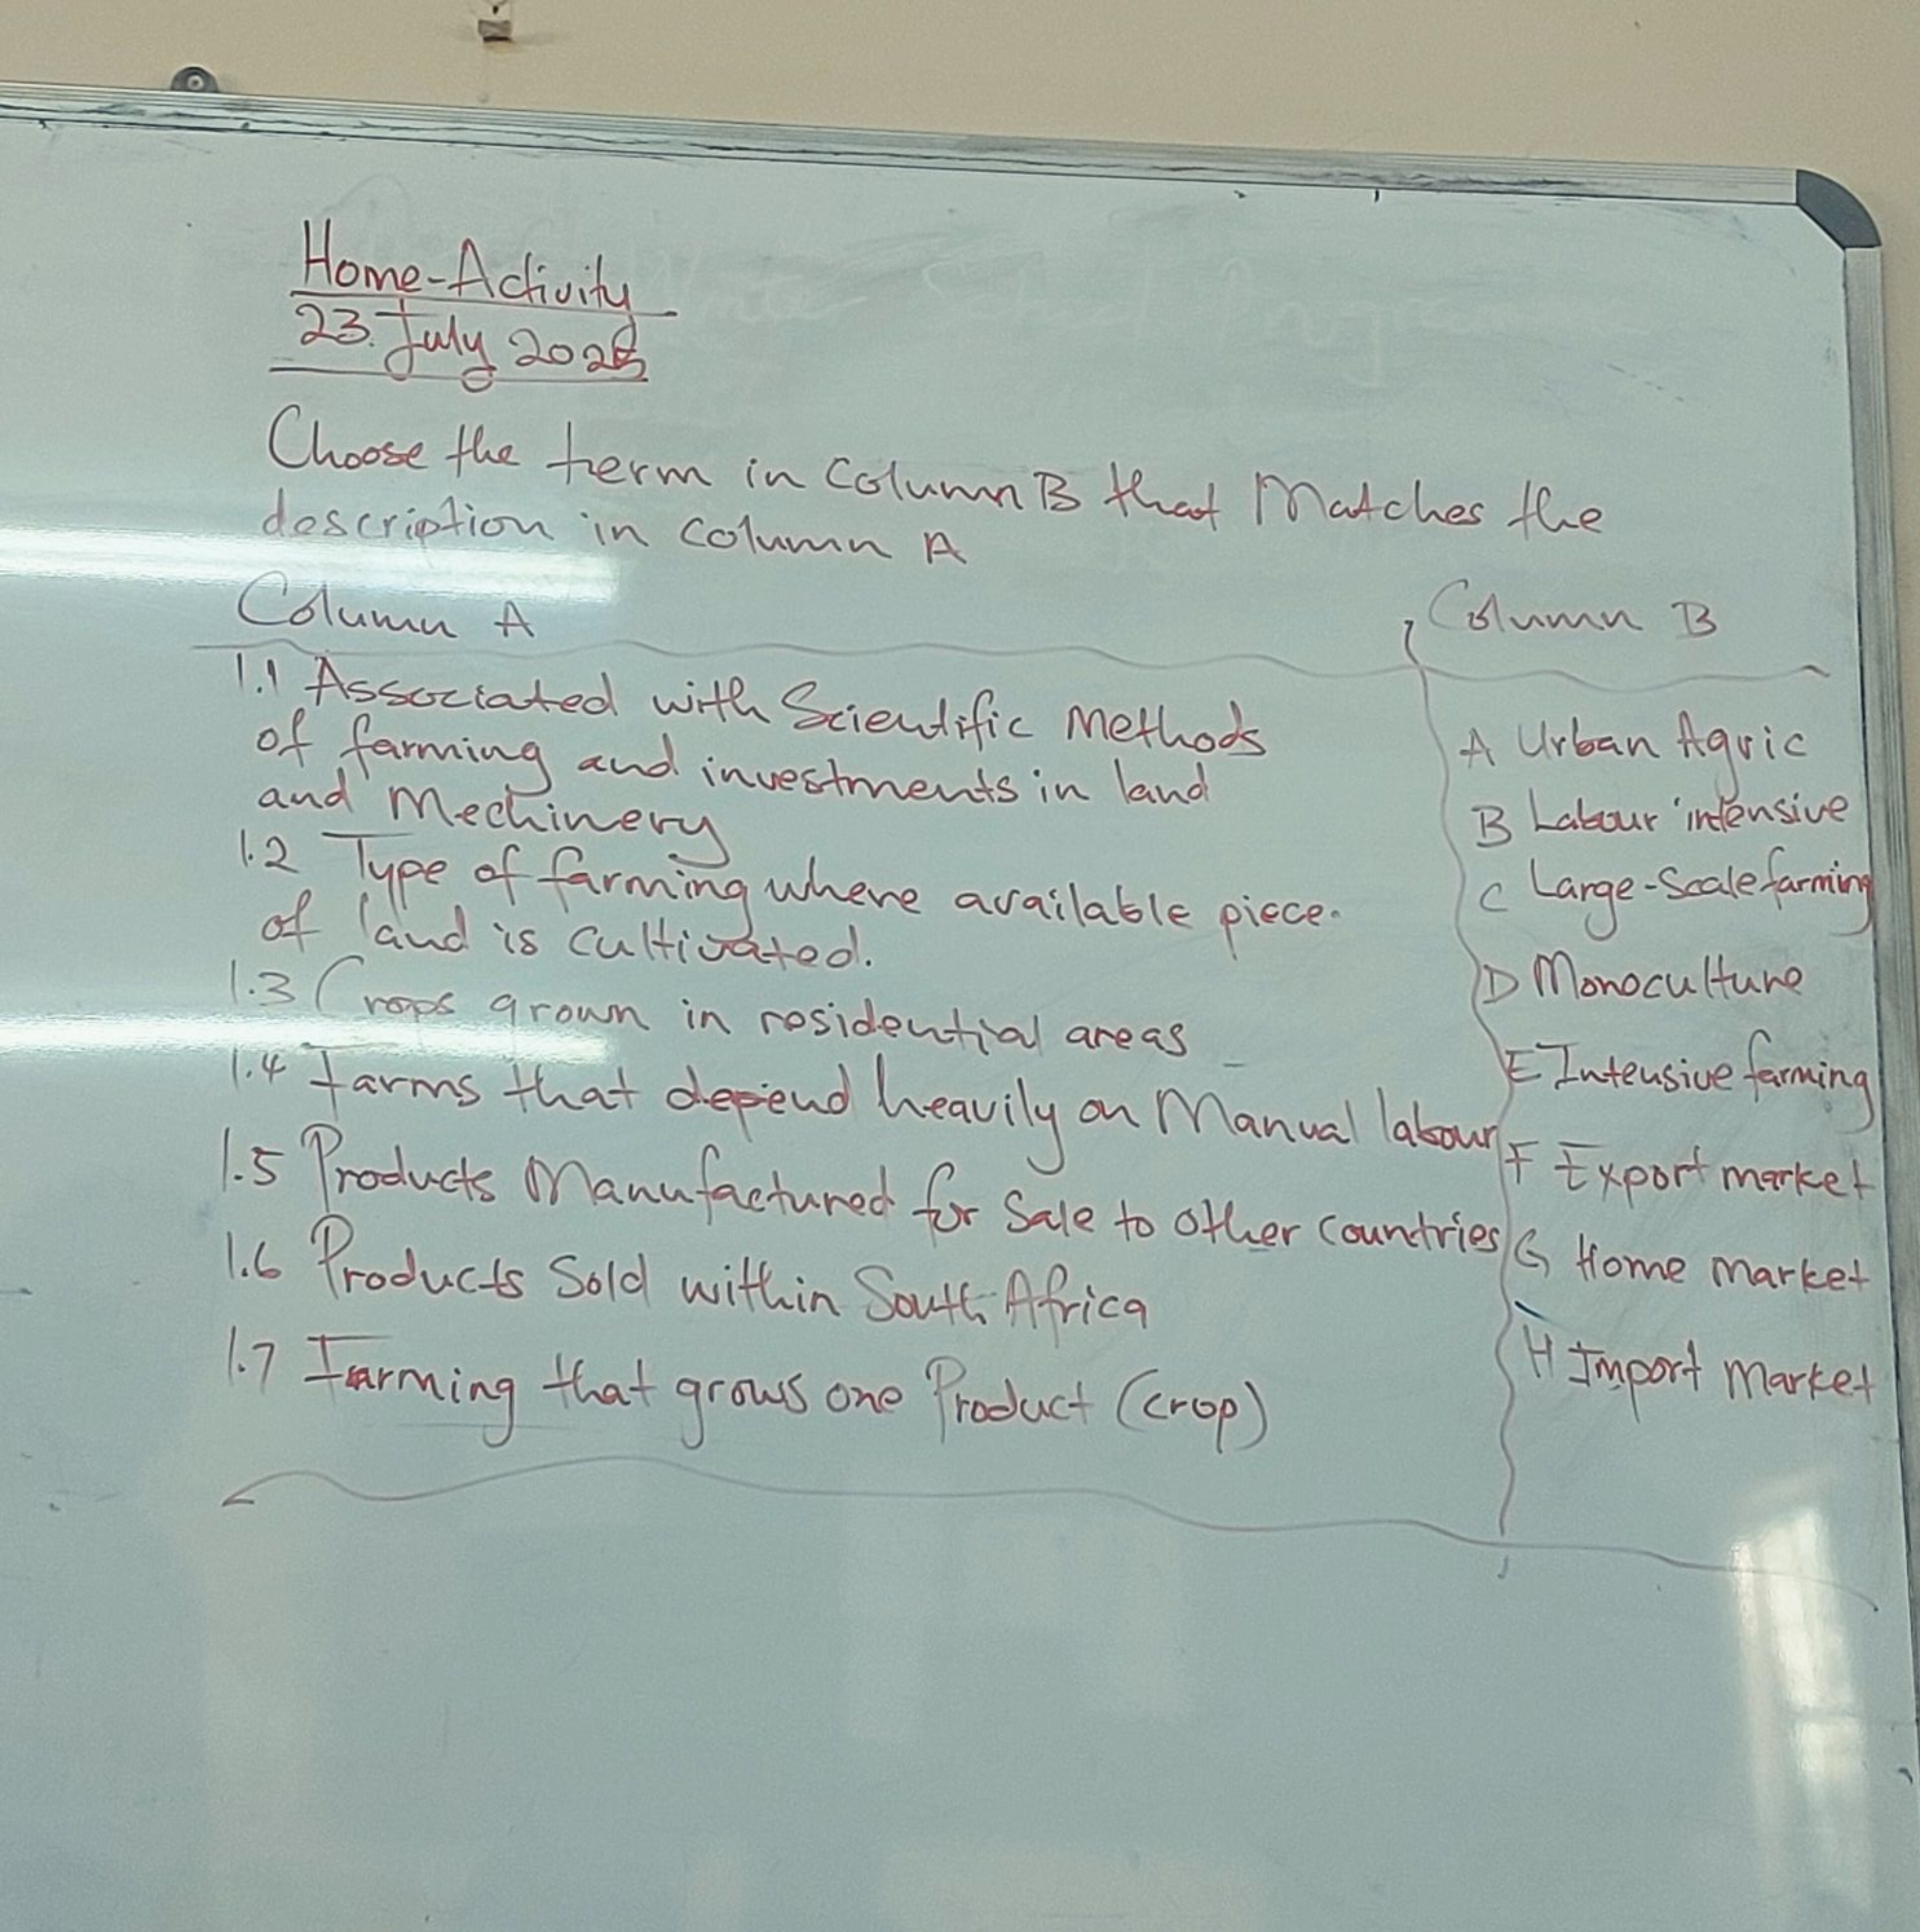 Home-Activity
23. July 2025
Choose the term in Column B that Matches the
description in Column A
Column A
1.1 Associated with Scientific Methods
of farming and investments in land
and Mechinery
1.2 Type of farming where available piece.
of land is cultivated.
1.3 Crops grown in residential areas
1.4 Farms that depend heavily on Manual labour
1.5 Products Manufactured for Sale to other countries
1.6 Products Sold within South Africa
1.7 Farming that grows one Product (crop)
Column B
A Urban Agric
B Labour intensive
C Large-Scale farming
D Monoculture
E Intensive farming
F Export market
G Home market
H Import Market